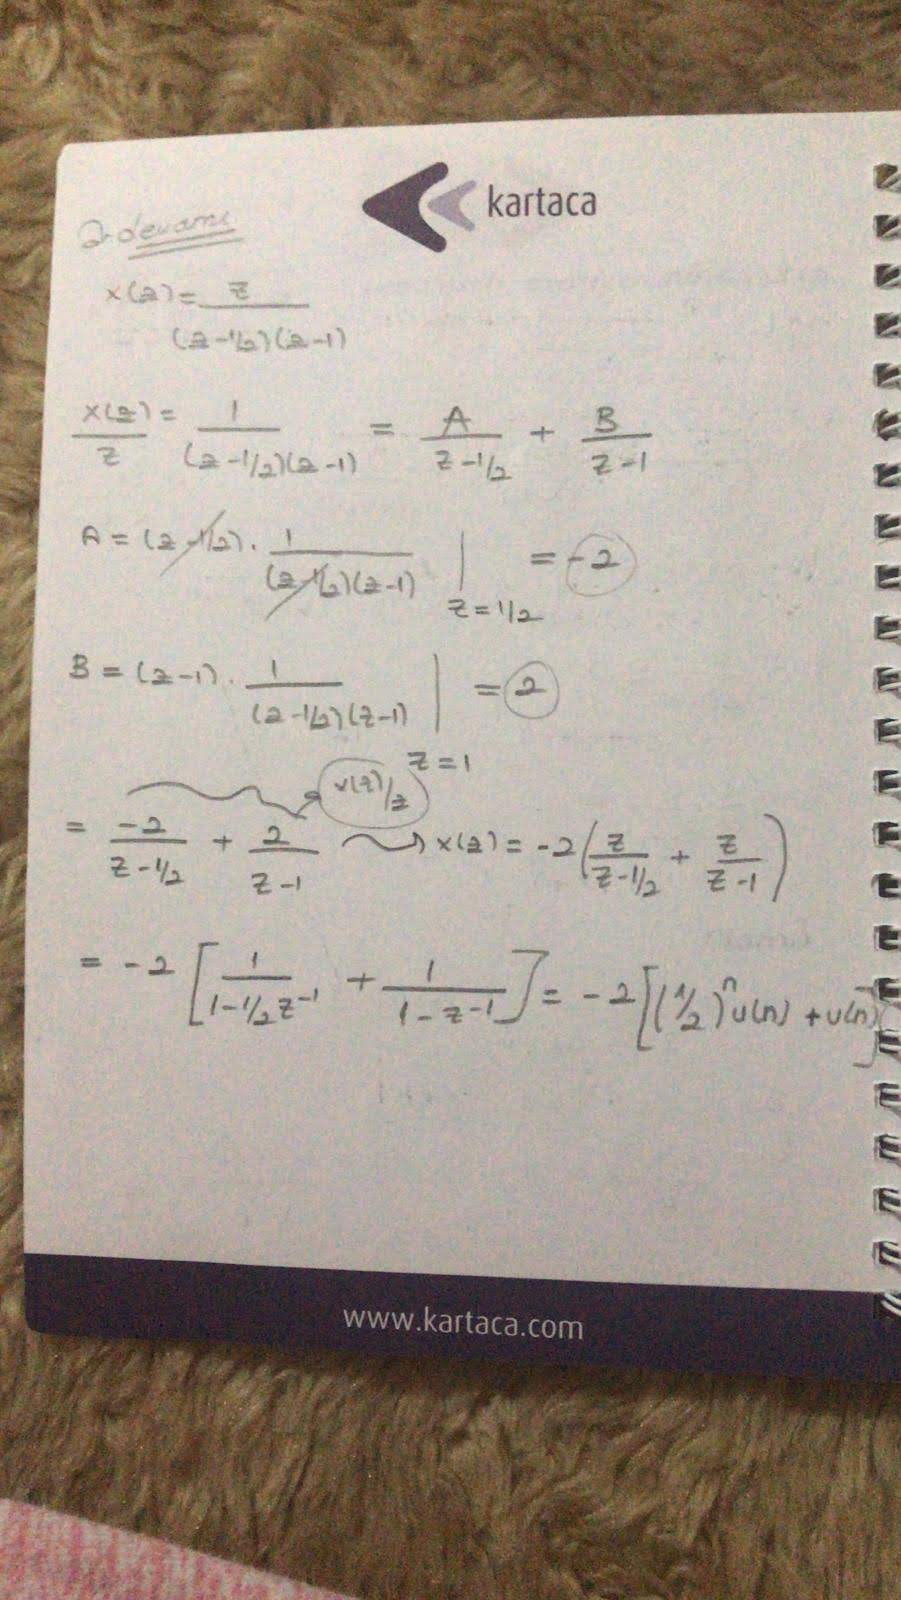 kartaca
2. devamı
x(z) = z / (z-1/2)(z-1)
x(z)/z = 1 / (z-1/2)(z-1) = A / z-1/2 + B / z-1
A = (z-1/2) . 1 / (z-1/2)(z-1) | z=1/2 = -2
B = (z-1) . 1 / (z-1/2)(z-1) | z=1 = 2
x(z)/z
= -2 / z-1/2 + 2 / z-1 → x(z) = -2 ( z / z-1/2 + z / z-1 )
= -2 [ 1 / 1-1/2z⁻¹ + 1 / 1-z⁻¹ ] = -2 [ (1/2)ⁿ u(n) + u(n) ]
www.kartaca.com